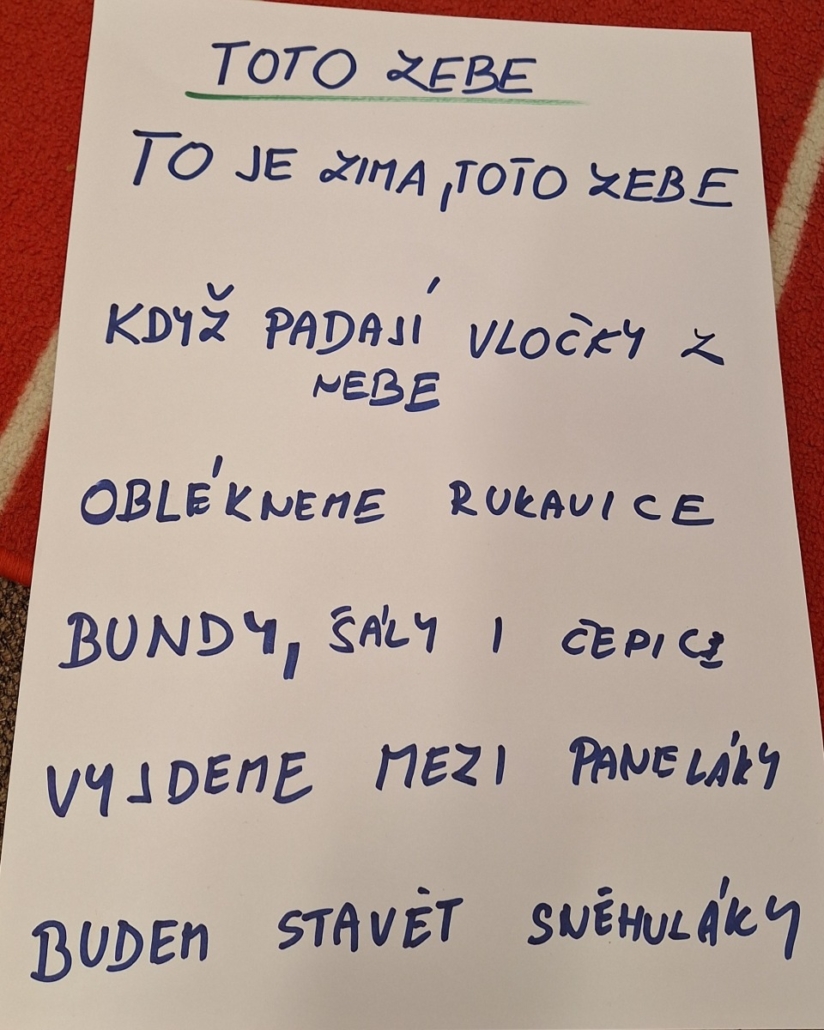 TOTO ZEBE
TO JE ZIMA, TOTO ZEBE
KDYŽ PADAJÍ VLOČKY Z
NEBE
OBLÉKNEME RUKAVICE
BUNDY, ŠÁLY I ČEPICE
VYJDEME MEZI PANELÁKY
BUDEM STAVĚT SNĚHULÁKY